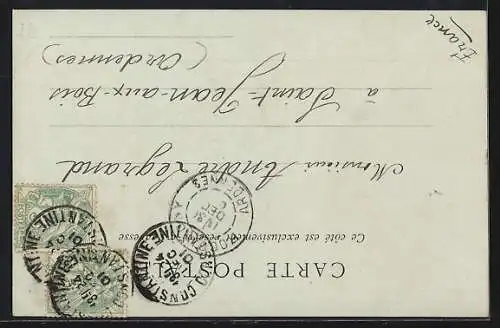 CARTE POSTALE
Ce côté est exclusivement réservé à l'adresse
Monsieur André Legrand
à Saint-Jean-aux-Bois
(Ardennes)
France
CONSTANTINE
CONSTANTINE
CONSTANTINE
ARDENNES